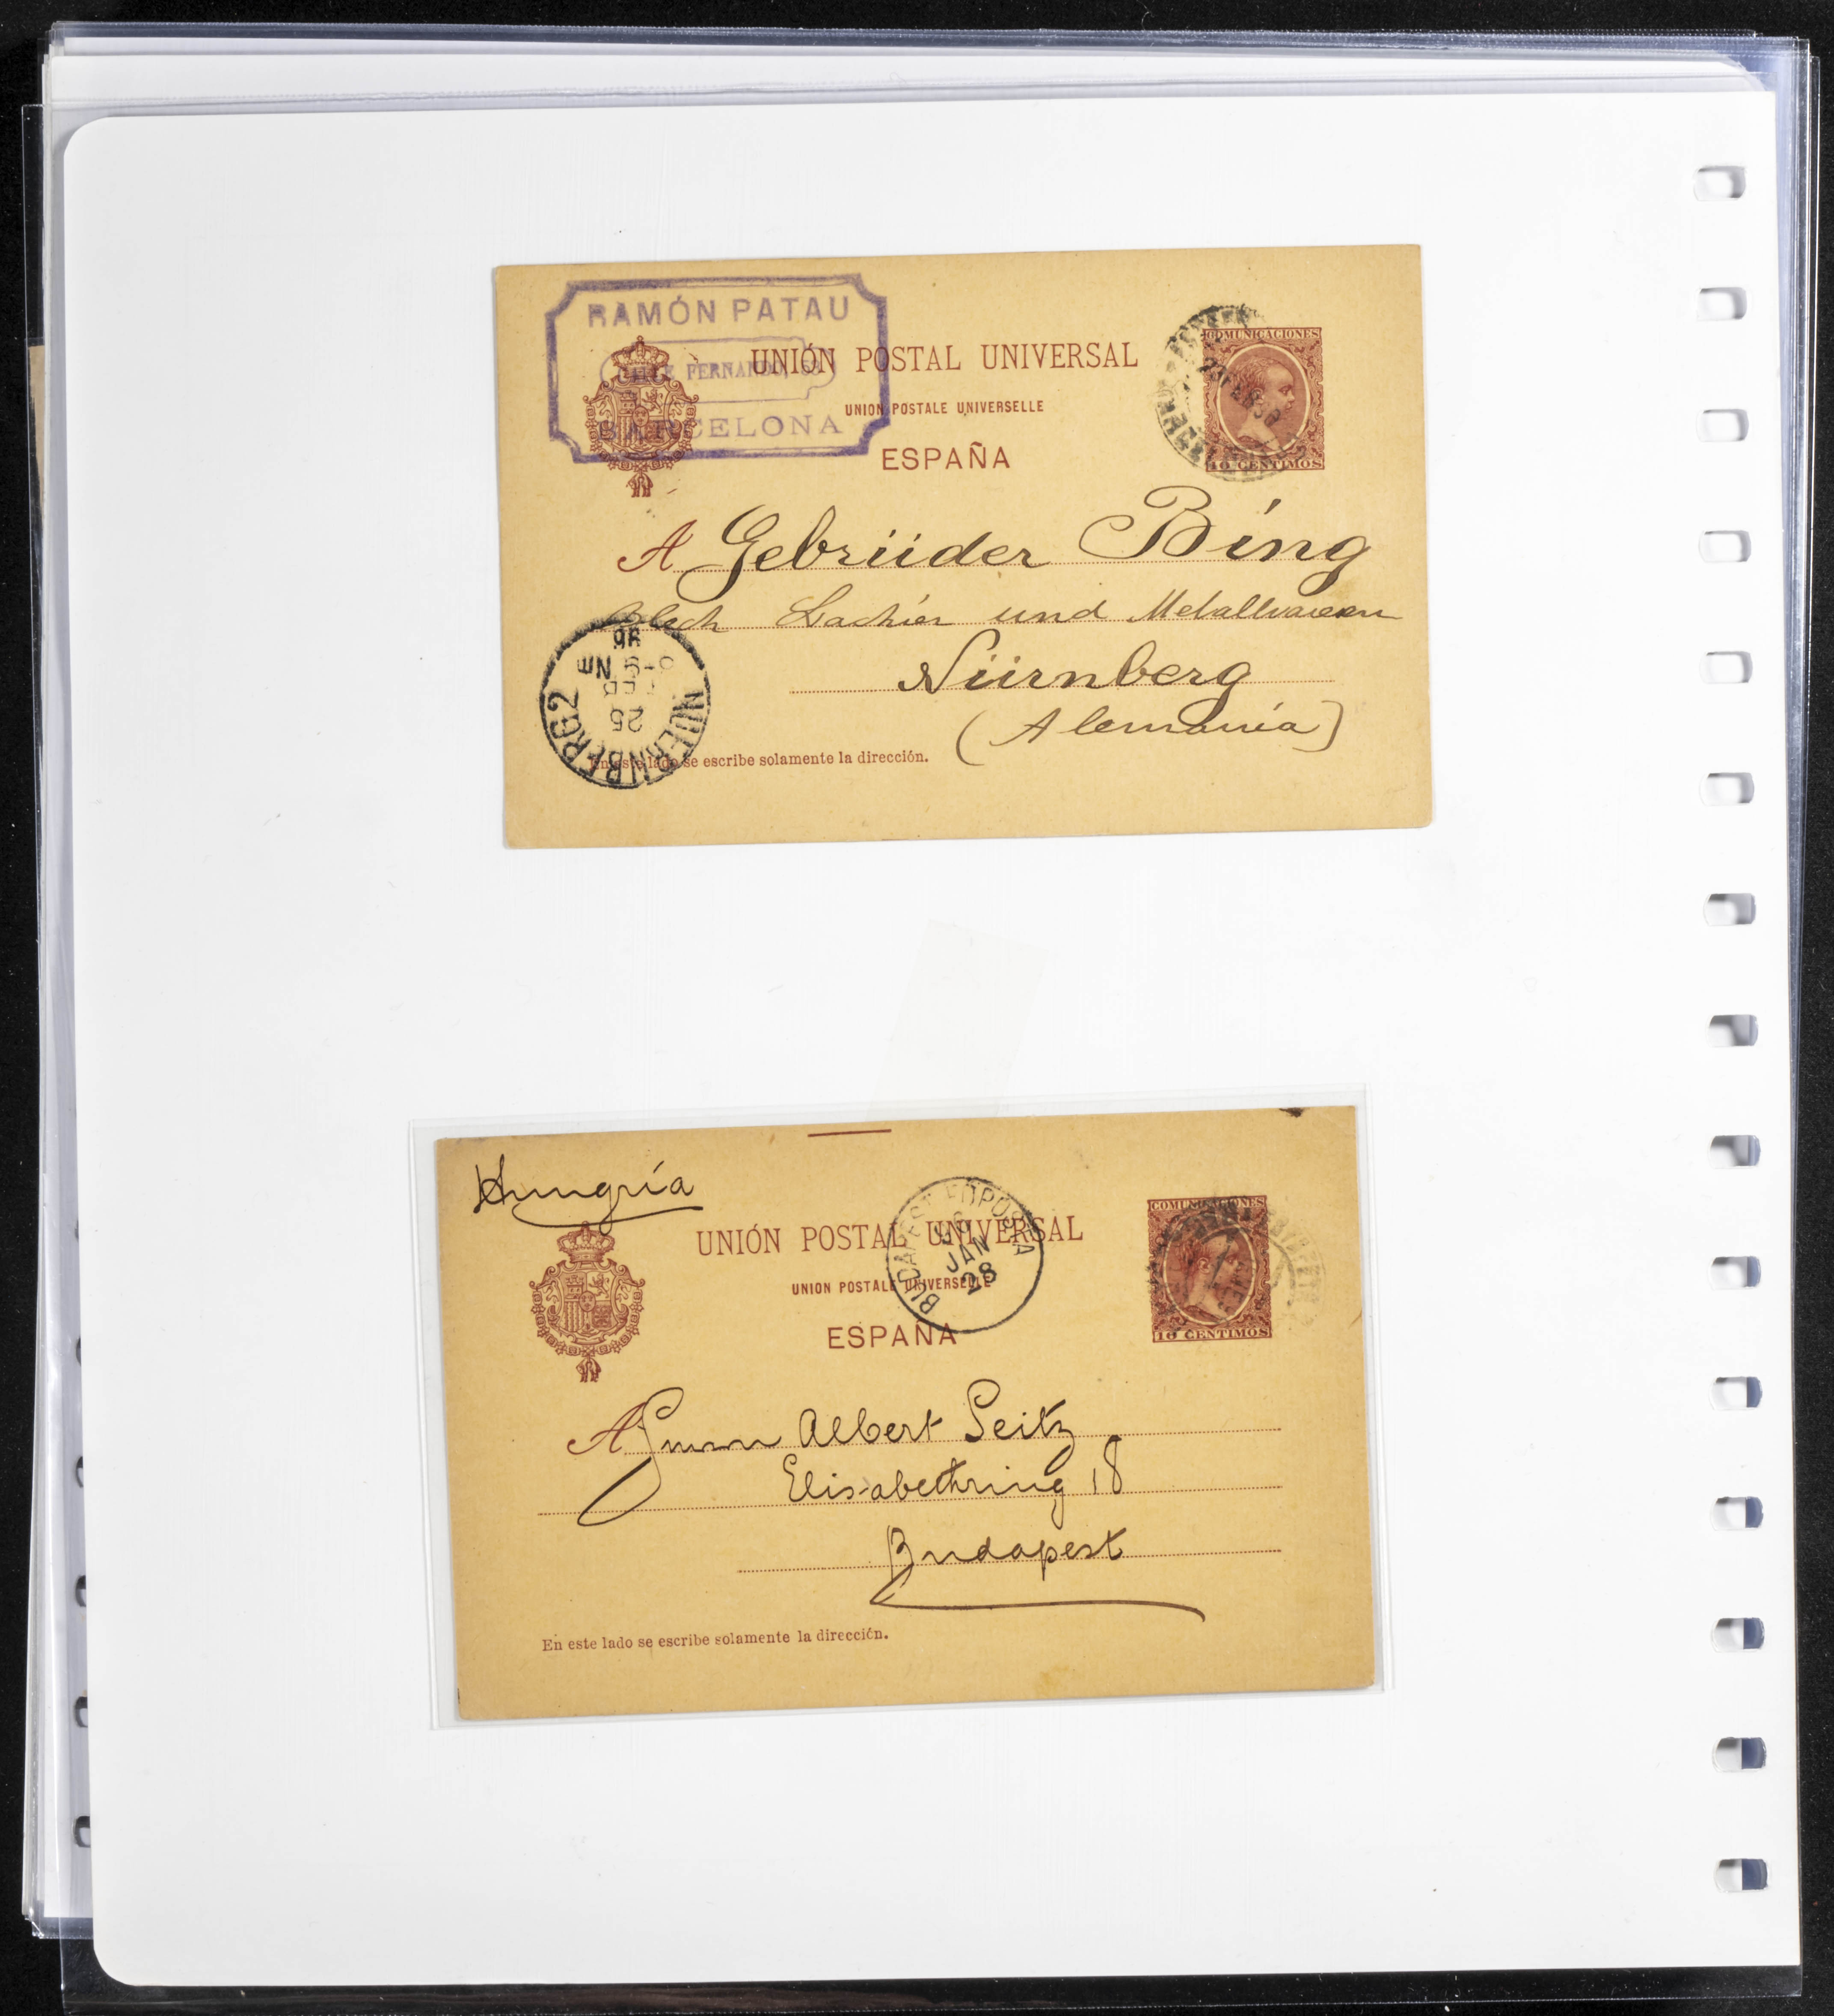 RAMÓN PATAU
CALLE FERNANDO, 53
BARCELONA
UNIÓN POSTAL UNIVERSAL
UNION POSTALE UNIVERSELLE
ESPAÑA
COMUNICACIONES
10 CENTIMOS
A Gebrüder Bing
Blech Lackier und Metallwaren
Nürnberg
(Alemania)
NUERNBERG 2
25
FEB
96
En este lado se escribe solamente la dirección.
Hungría
UNIÓN POSTAL UNIVERSAL
UNION POSTALE UNIVERSELLE
ESPAÑA
BUDAPEST FŐPOSTA
96
JAN
28
COMUNICACIONES
10 CENTIMOS
A Albert Seitz
Elisabethring 18
Budapest
En este lado se escribe solamente la dirección.